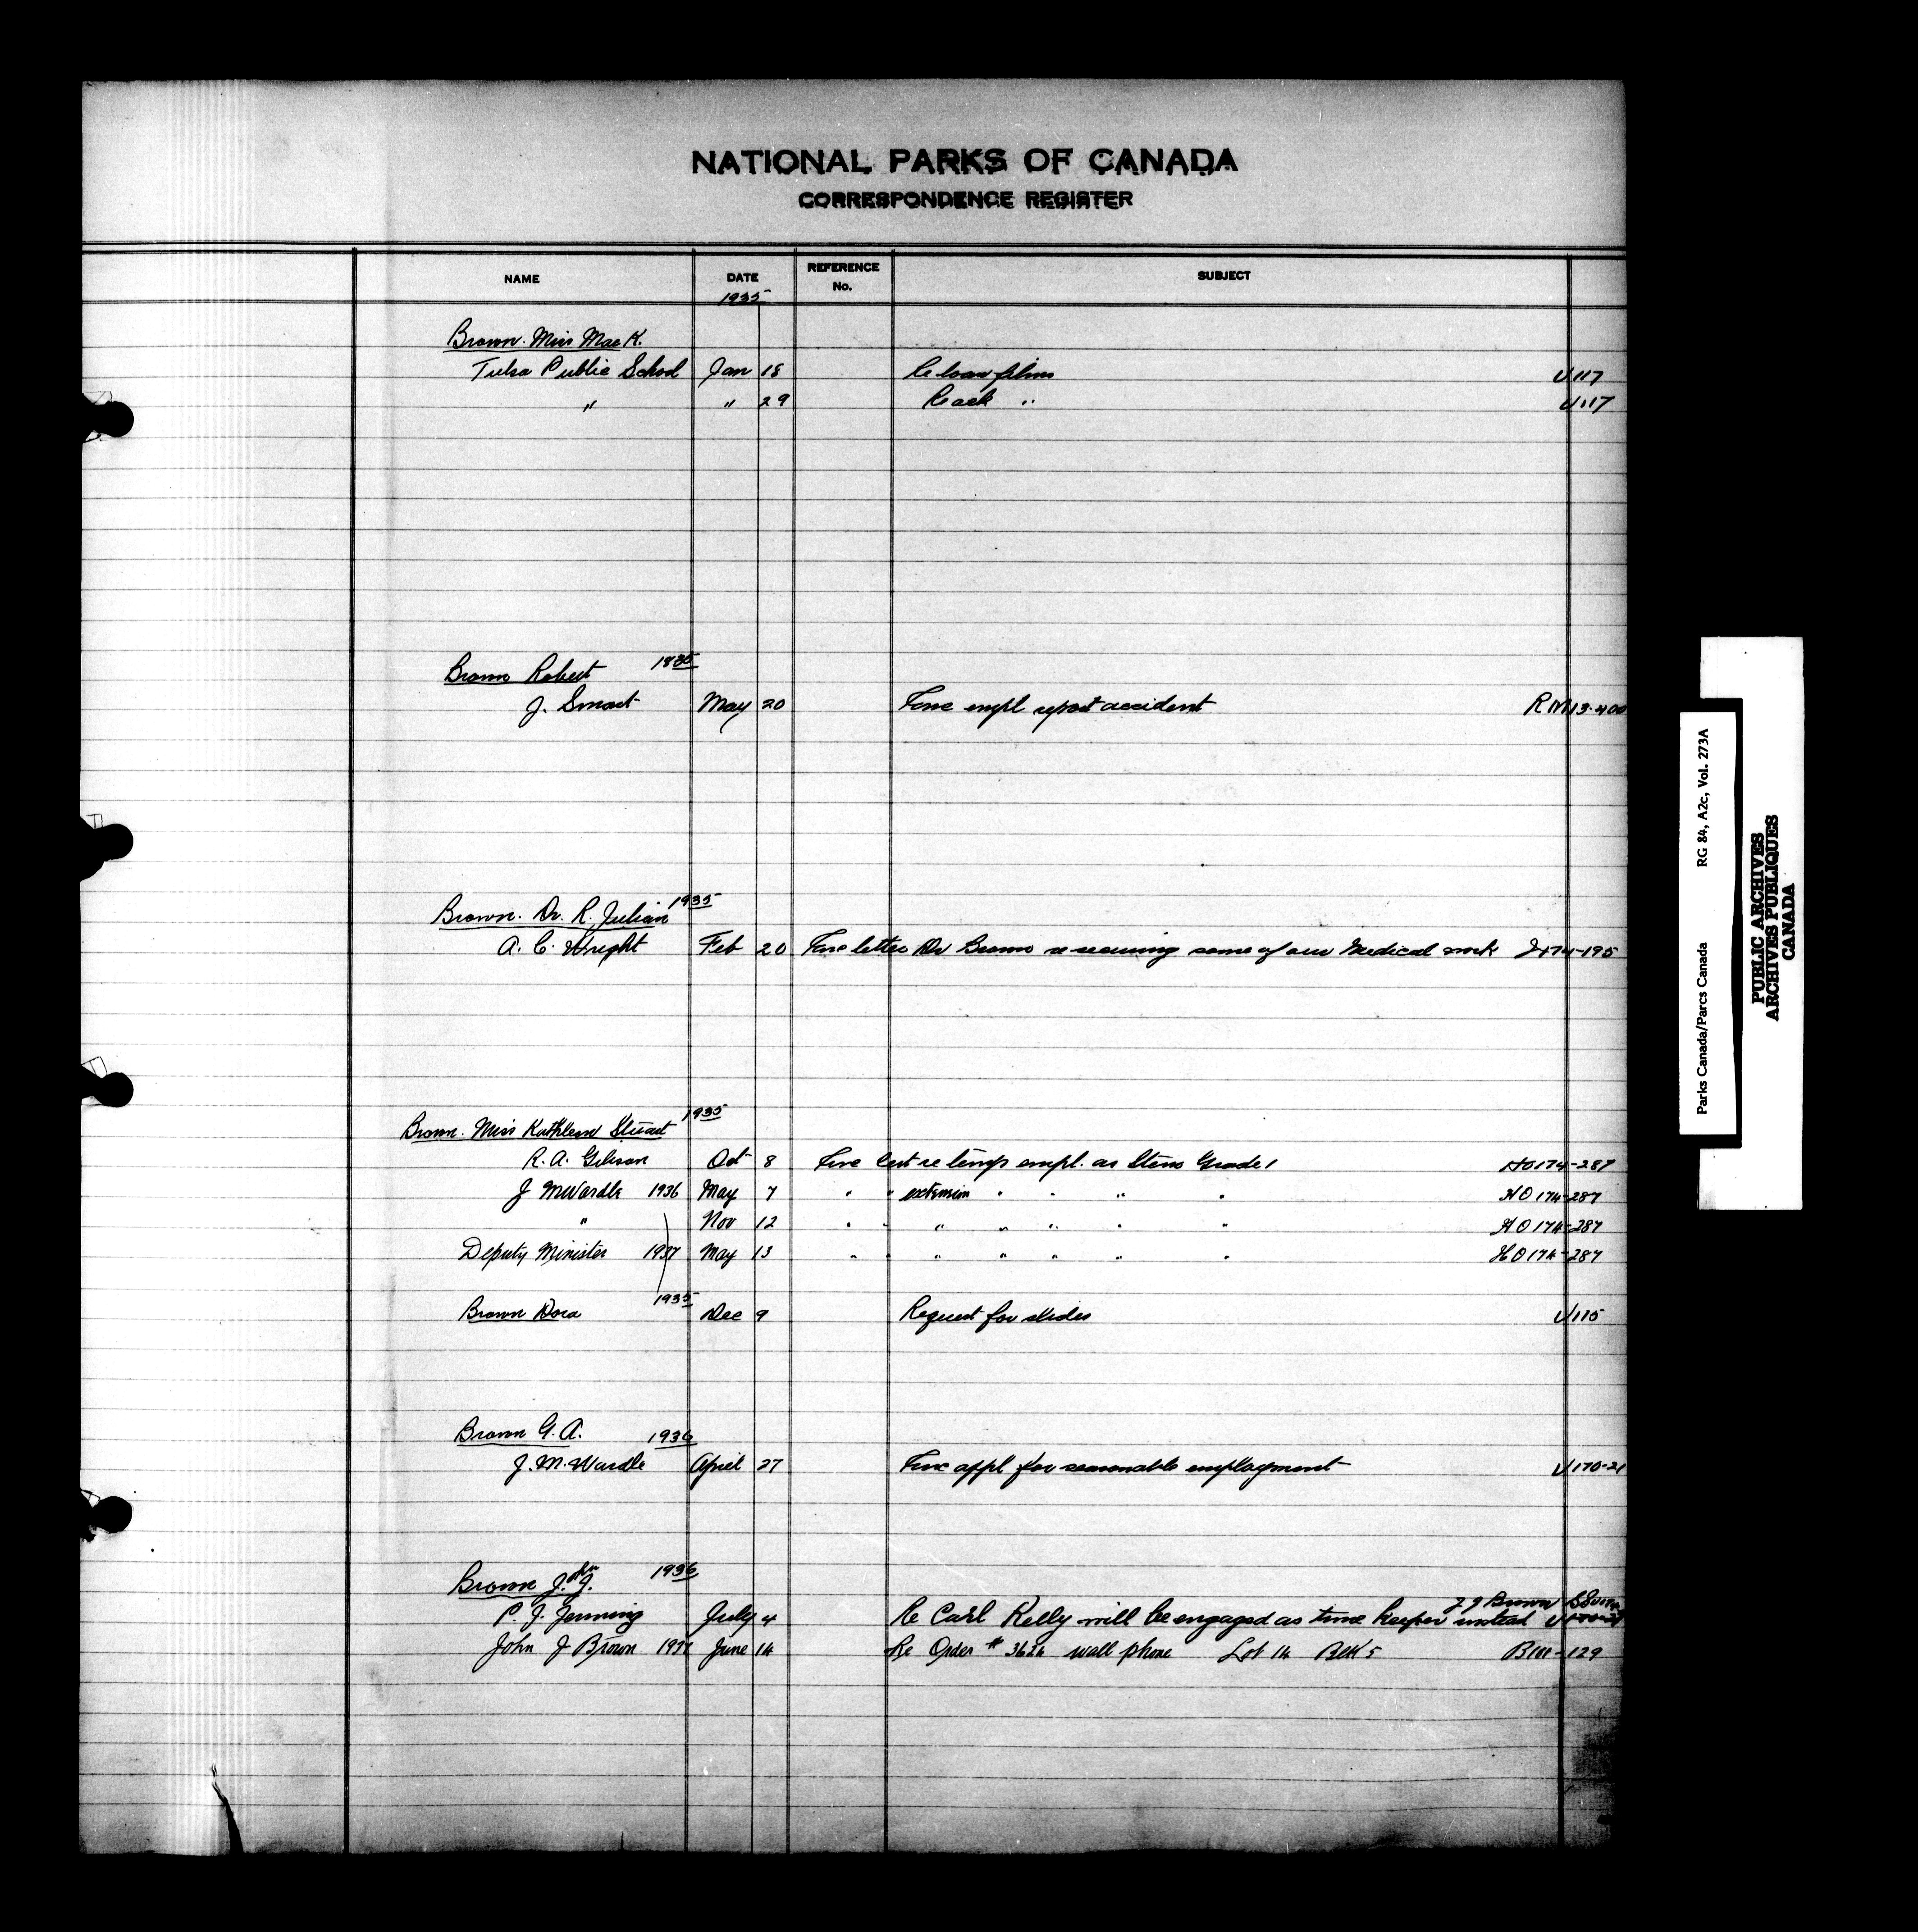 NATIONAL PARKS OF CANADA
CORRESPONDENCE REGISTER
NAME DATE REFERENCE No. SUBJECT
1935
Brown. Miss Mae K.
Tulsa Public School Jan 18 Re loan films U 117
" " 29 Re ack " U 117
Brown Robert
J. Smart May 20 Forw empl report accident RM 13-400
Brown. Dr. R. Julian 1935
A. C. Wright Feb 20 Forw letter Dr Brown re securing some of our Medical work J174-195
Brown. Miss Kathleen Stuart 1935
R. A. Gibson Oct 8 Forw cert re temp empl. as Steno Grade 1 HO174-287
J M Wardle 1936 May 7 " " extension " " " " HO 174-287
" Nov 12 " " " " " " " HO 174-287
Deputy Minister 1937 May 13 " " " " " " " HO 174-287
Brown Dora 1935 Dec 9 Request for slides U 115
Brown G. A. 1936
J. M. Wardle April 27 Forw appl for seasonable employment U 170-21
Brown J. J. John 1936
P. J. Jenning July 4 Re Carl Kelly will be engaged as time keeper instead J J Brown
John J Brown June 14 Re Order # 3624 wall phone Lot 14 Blk 5 -129
Parks Canada/Parcs Canada RG 84, A2c, Vol. 273A
PUBLIC ARCHIVES
ARCHIVES PUBLIQUES
CANADA